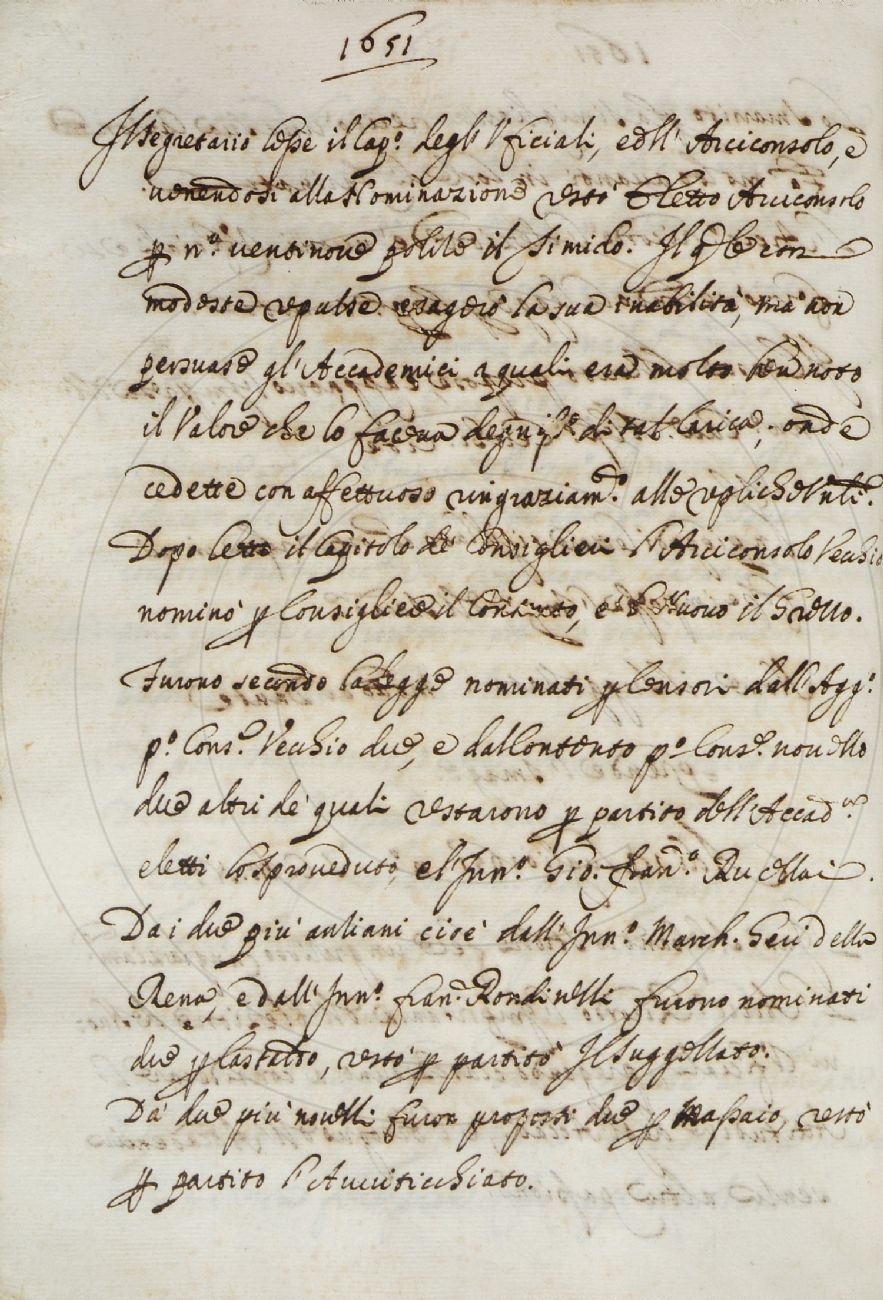 1651
Il Segretario lesse il Cap.º degl'Uficiali, e dell'Arciconsolo, e
venendosi alla Nominazione restò Eletto Arciconsolo
p n.º ventinove polize il Timido. Il qle con
modeste repulse esagerò la sua inabilità, mà non
persuase gl'Accademici a quali era molto ben noto
il Valore che lo faceva degniss.º di tal Carica, onde
cedette con affettuoso ringraziam.º alle repliche
Dopo letto il Capitolo de Consiglieri l'Arciconsolo Vecchio
nominò p Consigliere il Contento, e 'l Nuovo il Gretto.
Furono secondo la Legge nominati p Censori dall'Agg.º
p.º Cons.e Vecchio due, e dal Contento p.º Cons.e novello
due altri de quali restarono p partito dell'Accad.ª
eletti lo Sproveduto, e l'Inn.º Gio: Fran.º Rucellai.
Da i due più antiani cioè dall'Inn.º March. Geri della
Rena, e dall'Inn.º Fran.º Rondinelli furono nominati
due p Castaldo, restò p partito Il Suggellato.
Dà due più novelli furon proposti due p Massaio, restò
p partito l'Avviticchiato.